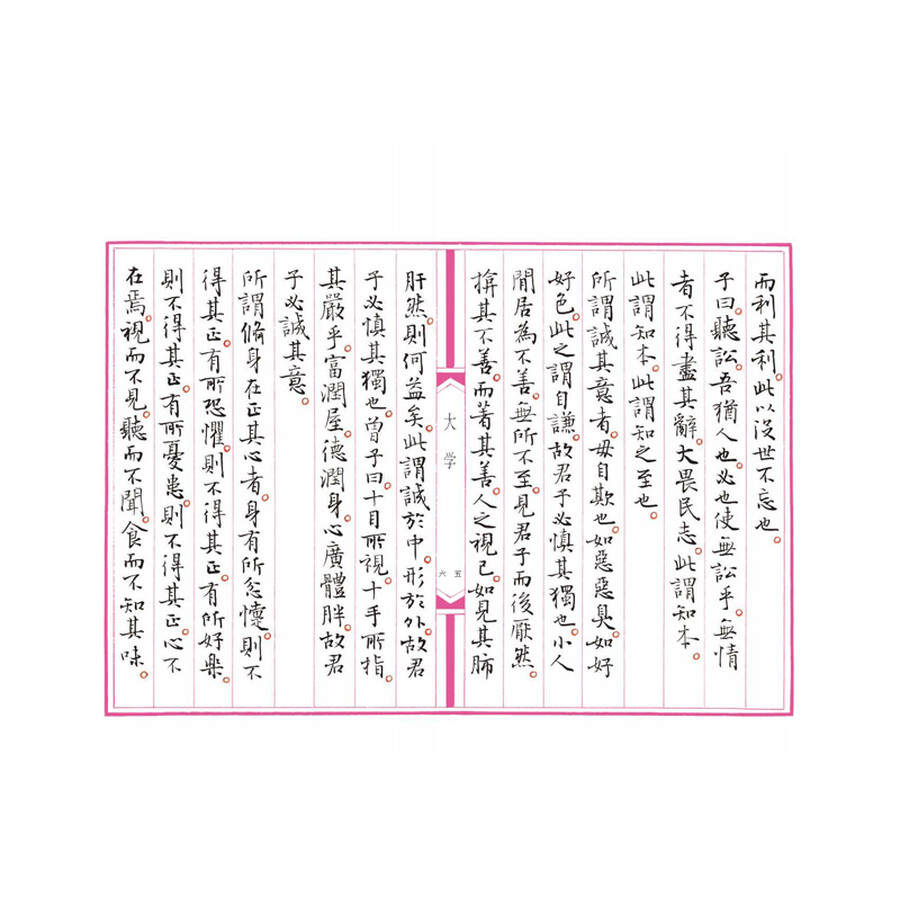 而利其利。此以沒世不忘也。
子曰。聽訟。吾猶人也。必也使無訟乎。無情
者不得盡其辭。大畏民志。此謂知本。
此謂知本。此謂知之至也。
所謂誠其意者。毋自欺也。如惡惡臭。如好
好色。此之謂自謙。故君子必慎其獨也。小人
閒居為不善。無所不至。見君子而後厭然。
揜其不善。而著其善。人之視己。如見其肺
大学
六 五
肝然。則何益矣。此謂誠於中。形於外。故君
子必慎其獨也。曾子曰。十目所視。十手所指。
其嚴乎。富潤屋。德潤身。心廣體胖。故君
子必誠其意。
所謂脩身在正其心者。身有所忿懥。則不
得其正。有所恐懼。則不得其正。有所好樂。
則不得其正。有所憂患。則不得其正。心不
在焉。視而不見。聽而不聞。食而不知其味。